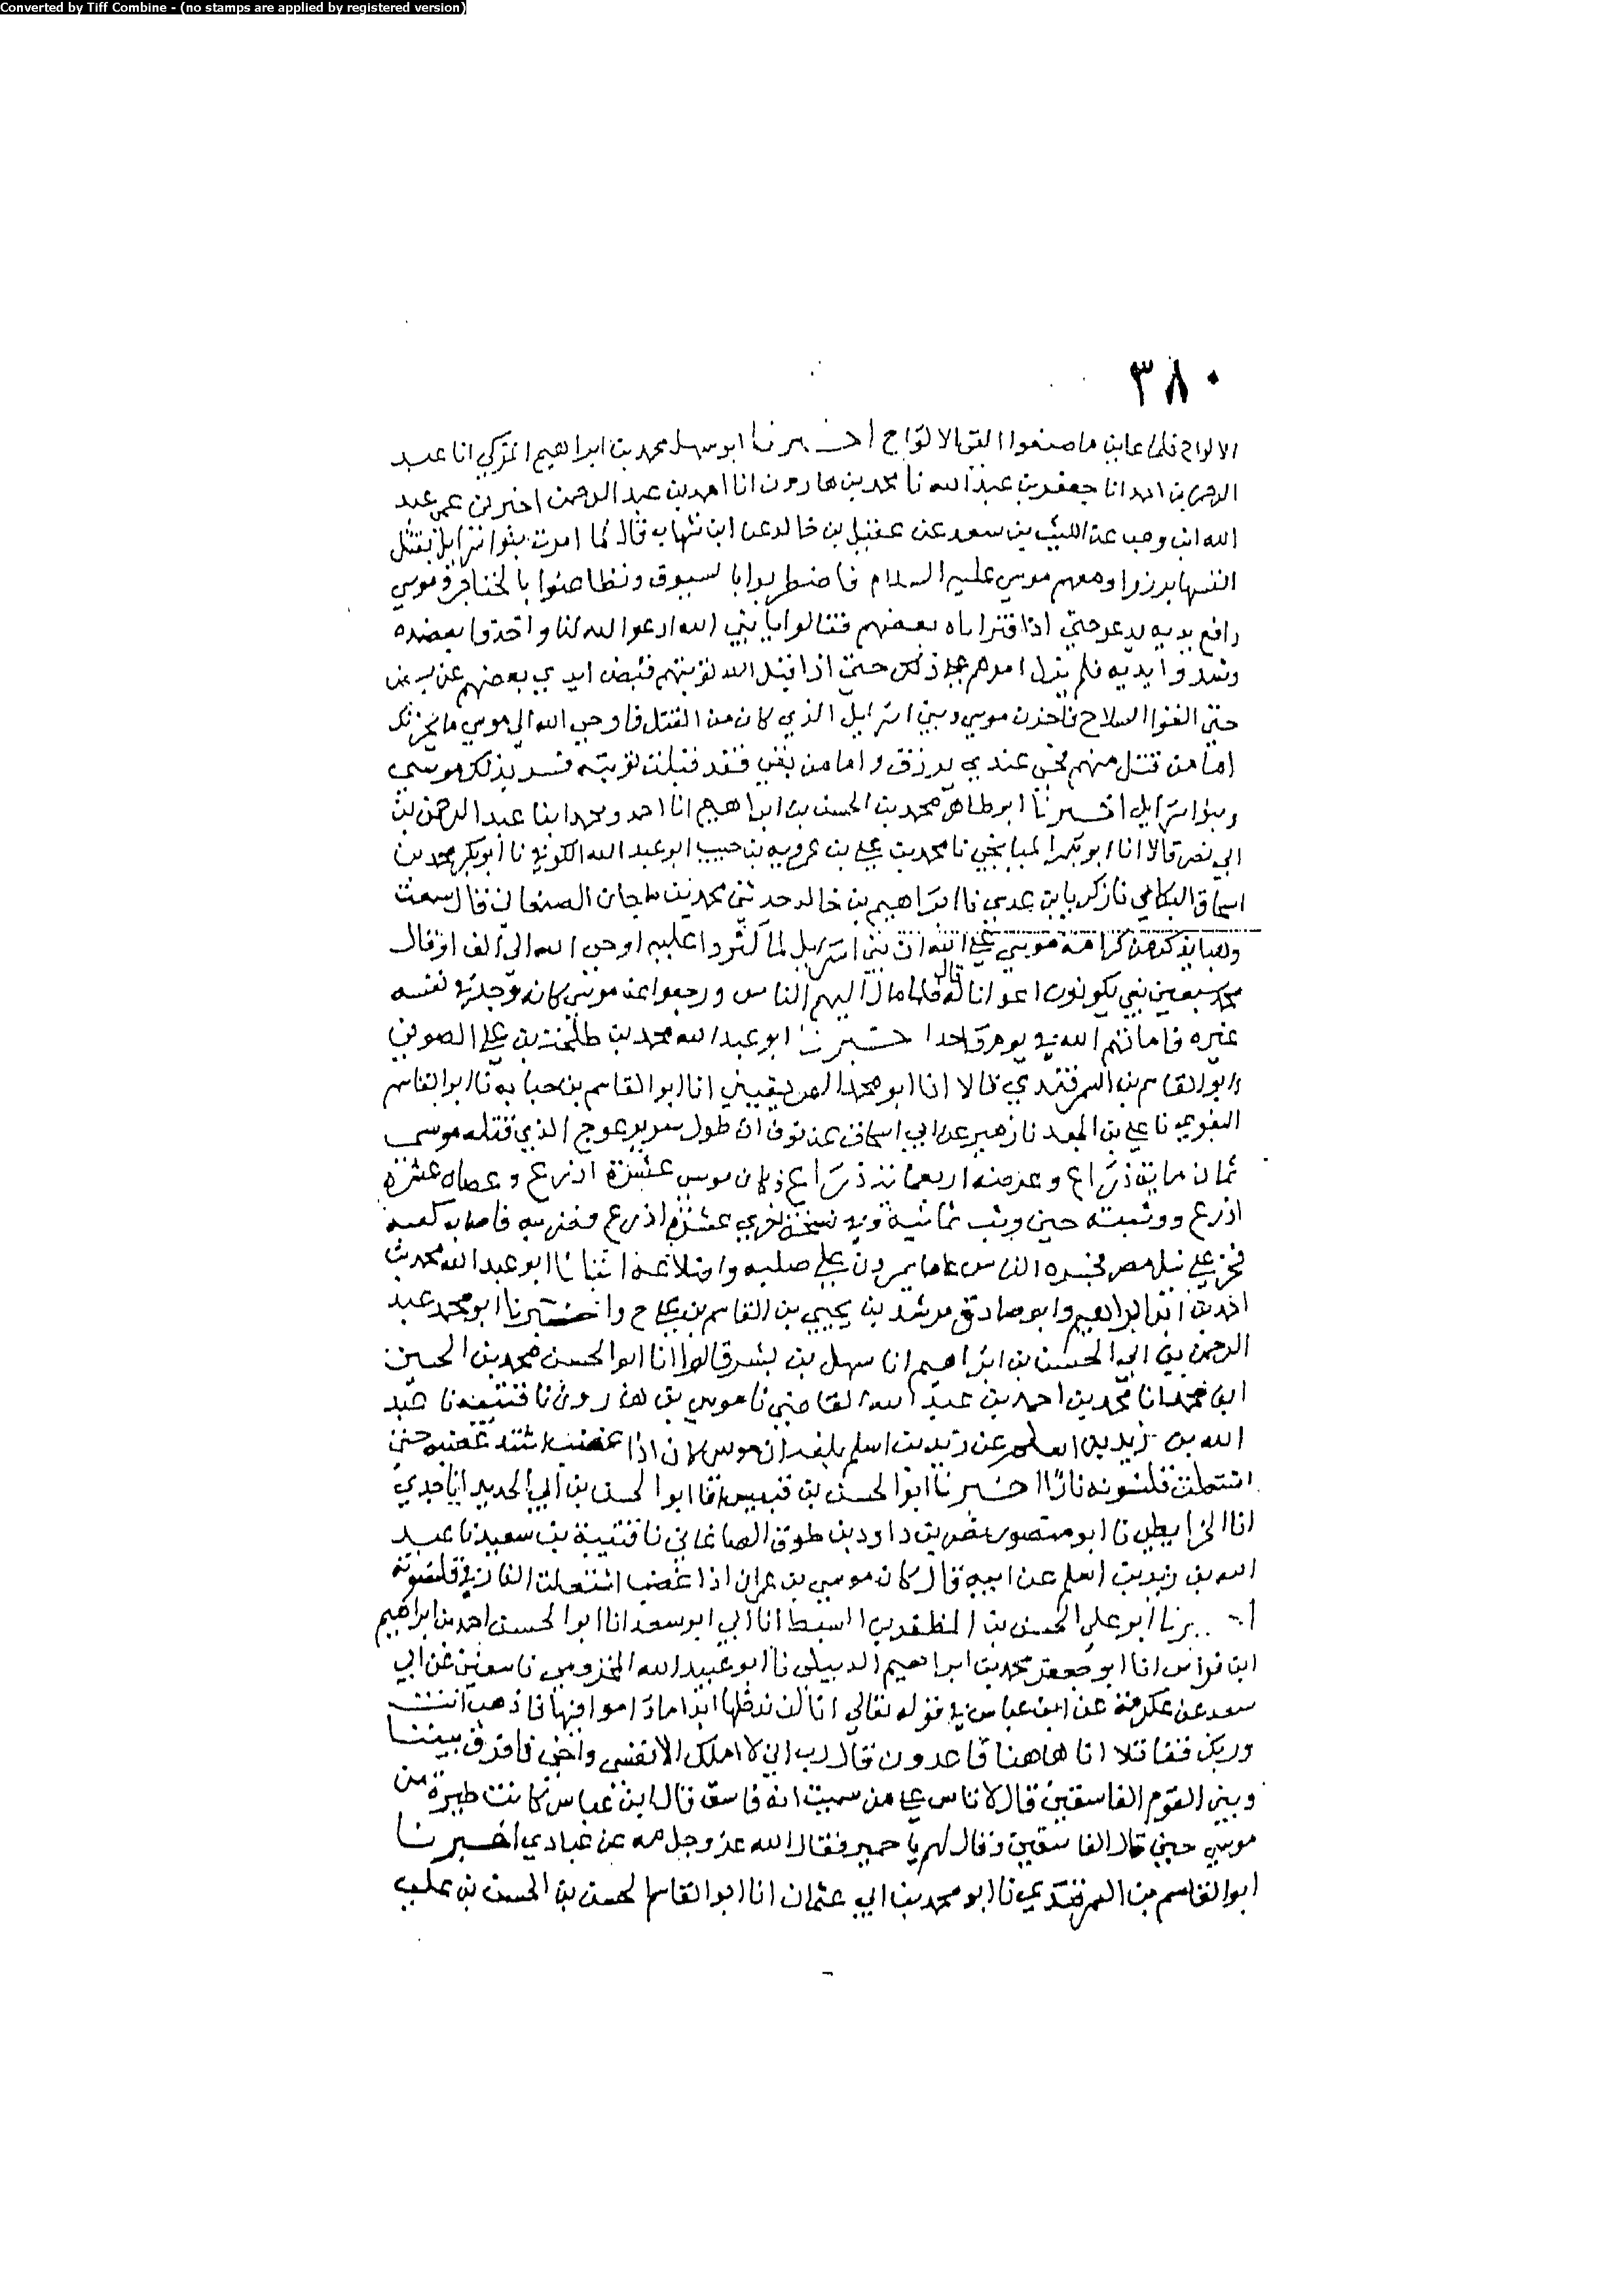 Converted by Tiff Combine - (no stamps are applied by registered version)
٣٨٠
الالواح فلما عاين ما صنعوا القى الالواح اخبرنا ابو سهل محمد بن ابراهيم المزكي انا عبد
الرحمن بن احمد انا جعفر بن عبد الله نا محمد بن هارون انا احمد بن عبد الرحمن اخبرني عمي عبد
الله ابن وهب عن الليث بن سعد عن عقيل بن خالد عن ابن شهاب قال لما امرت بنوا اسرايل بقتل
انفسها برزوا ومعهم موسي عليه السلام فاضطربوا بالسيوف وتطاعنوا بالخناجر وموسي
رافع يديه يدعو حتي اذا فتر اتاه بعضهم فقالوا يا نبي الله ادعوا الله لنا واخذوا بعضده
وشدوا يديه فلم يزل امرهم علي ذلك حتي اذا قبل الله توبتهم قبض ايدي بعضهم عن بعض
حتي القوا السلاح فاحزن موسي وبني اسرايل الذي كان من القتل فاوحي الله الي موسي ما يحزنك
اما من قتل منهم فحي عندي يرزق واما من بقي فقد قبلت توبته فسر بذلك موسي
وبنوا اسرايل اخبرنا ابو طاهر محمد بن الحسن بن ابراهيم انا احمد ومحمد ابنا عبد الرحمن بن
ابي نصر قالا انا ابو بكر الميانجي نا محمد بن علي بن عروبه بن حبيب ابو عبد الله الكوفي نا ابو بكر محمد بن
اسحاق البكاي نا زكريا بن عدي نا ابراهيم بن خالد حدثني محمد بن الصنعاني قال سمعت
وهبا يذكر من كرامة موسي علي الله ان بني اسرايل لما كثروا عليه اوحي الله الي الف او قال
سبعين نبي يكونون اعوانا له قال فلما مال اليهم الناس ورجعوا عن موسي كانه وجد في نفسه
غيره فاماتهم الله في يوم واحد اخبرنا ابو عبد الله محمد بن طلحة بن علي الصوفي
وابو القاسم بن السمرقندي قالا انا ابو محمد الصريفيني انا ابو القاسم بن حبابه نا ابو القاسم
البغوي نا علي بن الجعد نا زهير عن ابي اسحاق عن نوف ان طول سرير عوج الذي قتله موسي
ثمان ماية ذراع وعرضه اربعماية ذراع وكان موسي عشرة اذرع وعصاه عشرة
اذرع ووثبته حين وثب ثمانية وفي نسخة اخري عشرة اذرع وضربه فاصاب كعبه
فخر علي نيل مصر فجسره الناس عاما يمرون علي صلبه واضلاعه انبانا ابو عبد الله محمد بن
احمد بن ابراهيم وابو صادق مرشد بن يحيي بن القاسم بن علي ح واخبرنا ابو محمد عبد
الرحمن بن ابي الحسن بن ابراهيم انا سهل بن بشر قالوا انا ابو الحسن محمد بن الحسين
ابن محمد انا محمد بن احمد بن عبد الله القاضي نا موسي بن هارون نا قتيبه نا عبد
الله بن زيد بن اسلم عن زيد بن اسلم بلغه ان موسي كان اذا غضب اشتد غضبه حتي
اشتعلت قلنسوته نارا اخبرنا ابو الحسن بن قبيس نا ابو الحسن بن ابي الحديد انا جدي
انا الخرايطي نا ابو منصور نصر بن داود بن طوق الصاغاني نا قتيبة بن سعيد نا عبد
الله بن زيد بن اسلم عن ابيه قال كان موسي بن عمران اذا غضب اشتعلت النار في قلنسوته
اخبرنا ابو علي الحسن بن المظفر بن السبط انا ابي ابو سعد انا ابو الحسن احمد بن ابراهيم
ابن فراس انا ابو جعفر محمد بن ابراهيم الديبلي نا ابو عبيد الله المخزومي نا سفين عن ابي
سعد عن عكرمة عن ابن عباس في قوله تعالي انا لن ندخلها ابدا ما داموا فيها فاذهب انت
وربك فقاتلا انا هاهنا قاعدون قال رب اني لا املك الا نفسي واخي فافرق بيننا
وبين القوم الفاسقين قال لا تاس علي من سميت انه فاسق قال ابن عباس كانت طيرة من
موسي حين قال الفاسقين وقال لهم يا حمير فقال الله عز وجل مه عن عبادي اخبرنا
ابو القاسم بن السمرقندي نا ابو محمد بن ابي عثمان انا ابو القاسم الحسن بن الحسن بن علي